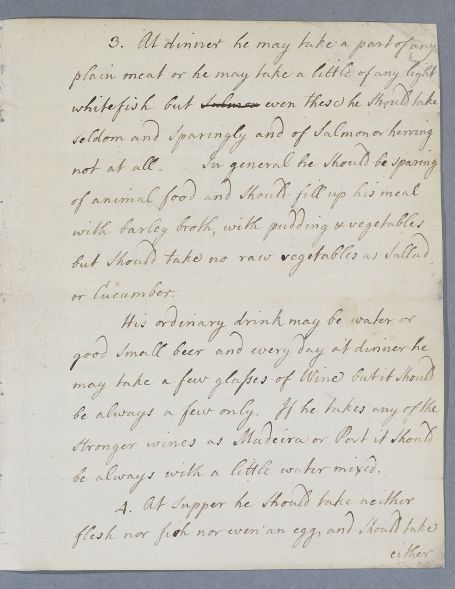 3. At dinner he may take a part of any
plain meat or he may take a little of any light
white fish but Salmon even these he should take
seldom and sparingly and of Salmon or herring
not at all. In general he should be sparing
of animal food and should fill up his meal
with barley broth, with pudding & vegetables
but should take no raw vegetables as Sallad
or Cucumber.
His ordinary drink may be water or
good small beer and every day at dinner he
may take a few glasses of Wine but it should
be always a few only. If he takes any of the
stronger wines as Madeira or Port it should
be always with a little water mixed.
4. At supper he should take neither
flesh nor fish nor even an egg, and should take
either